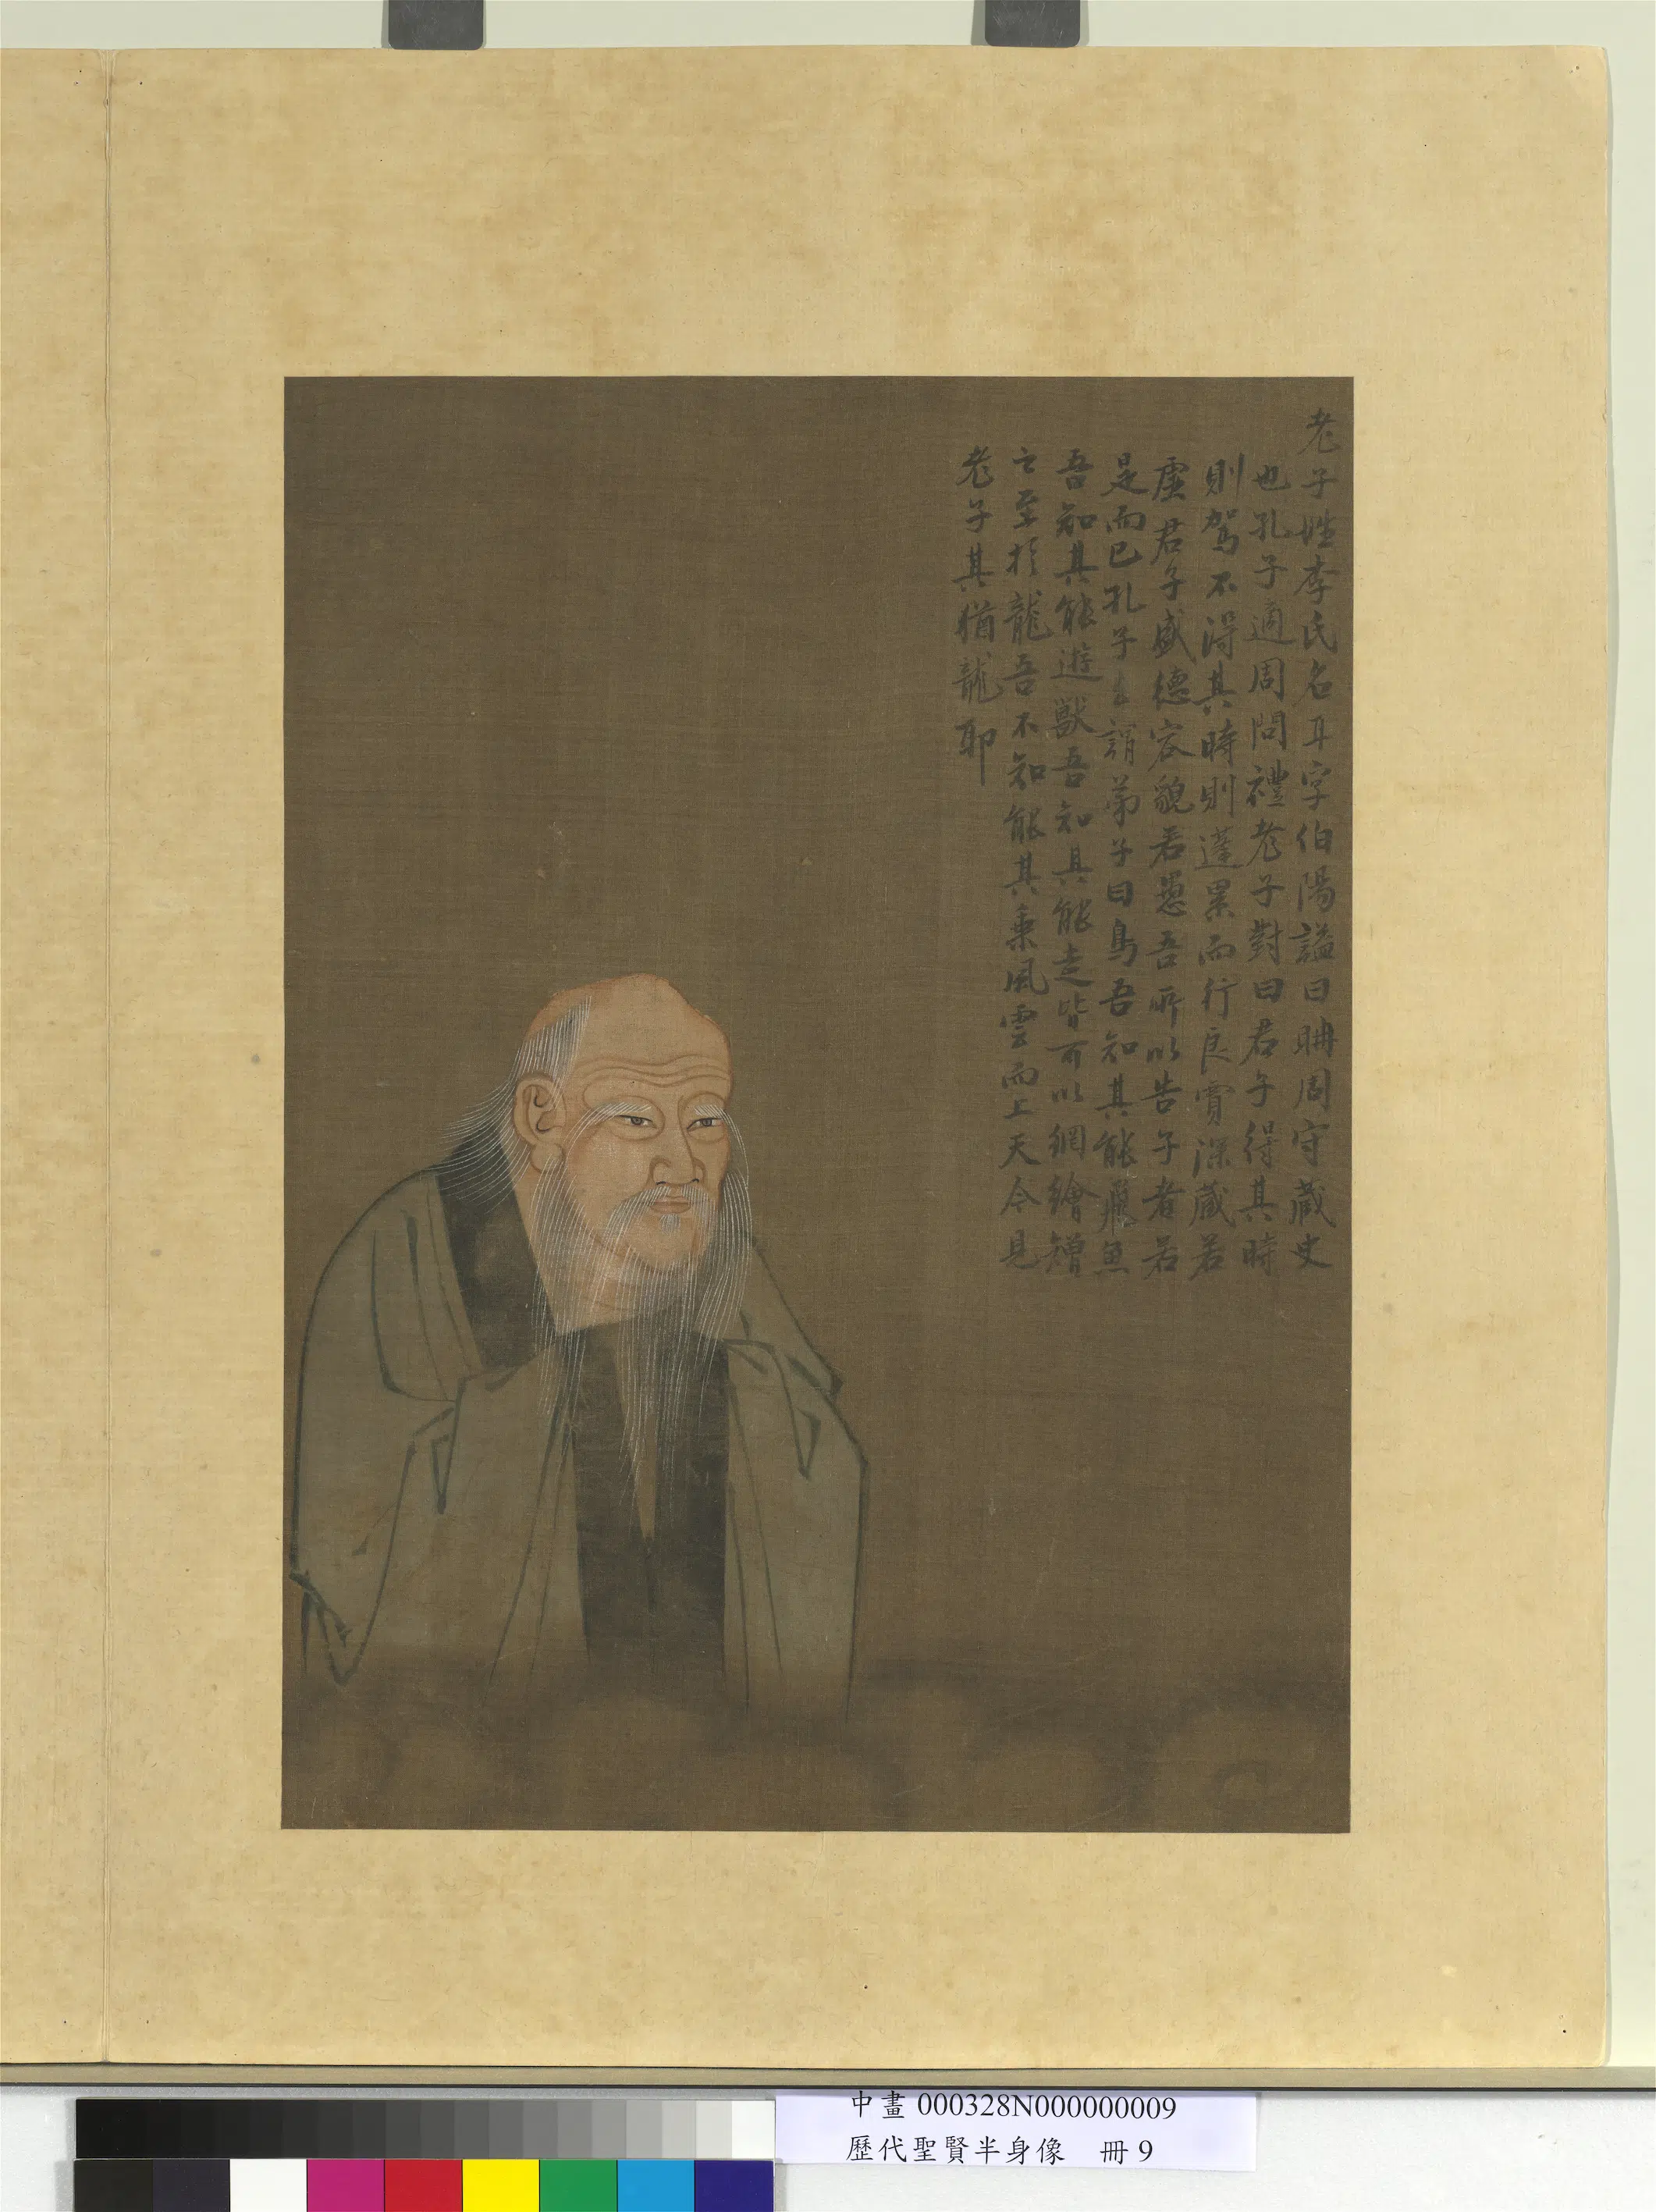 老子姓李氏名耳字伯陽謚曰聃周守藏史
也孔子適周問禮老子對曰君子得其時
則駕不得其時則蓬累而行良賈深藏若
虛君子盛德容貌若愚吾所以告子者若
是而已孔子去謂弟子曰鳥吾知其能飛魚
吾知其能遊獸吾知其能走皆可以網繒矰
之至於龍吾不知能其乘風雲而上天今見
老子其猶龍耶
中畫000328N000000009
歷代聖賢半身像 冊9